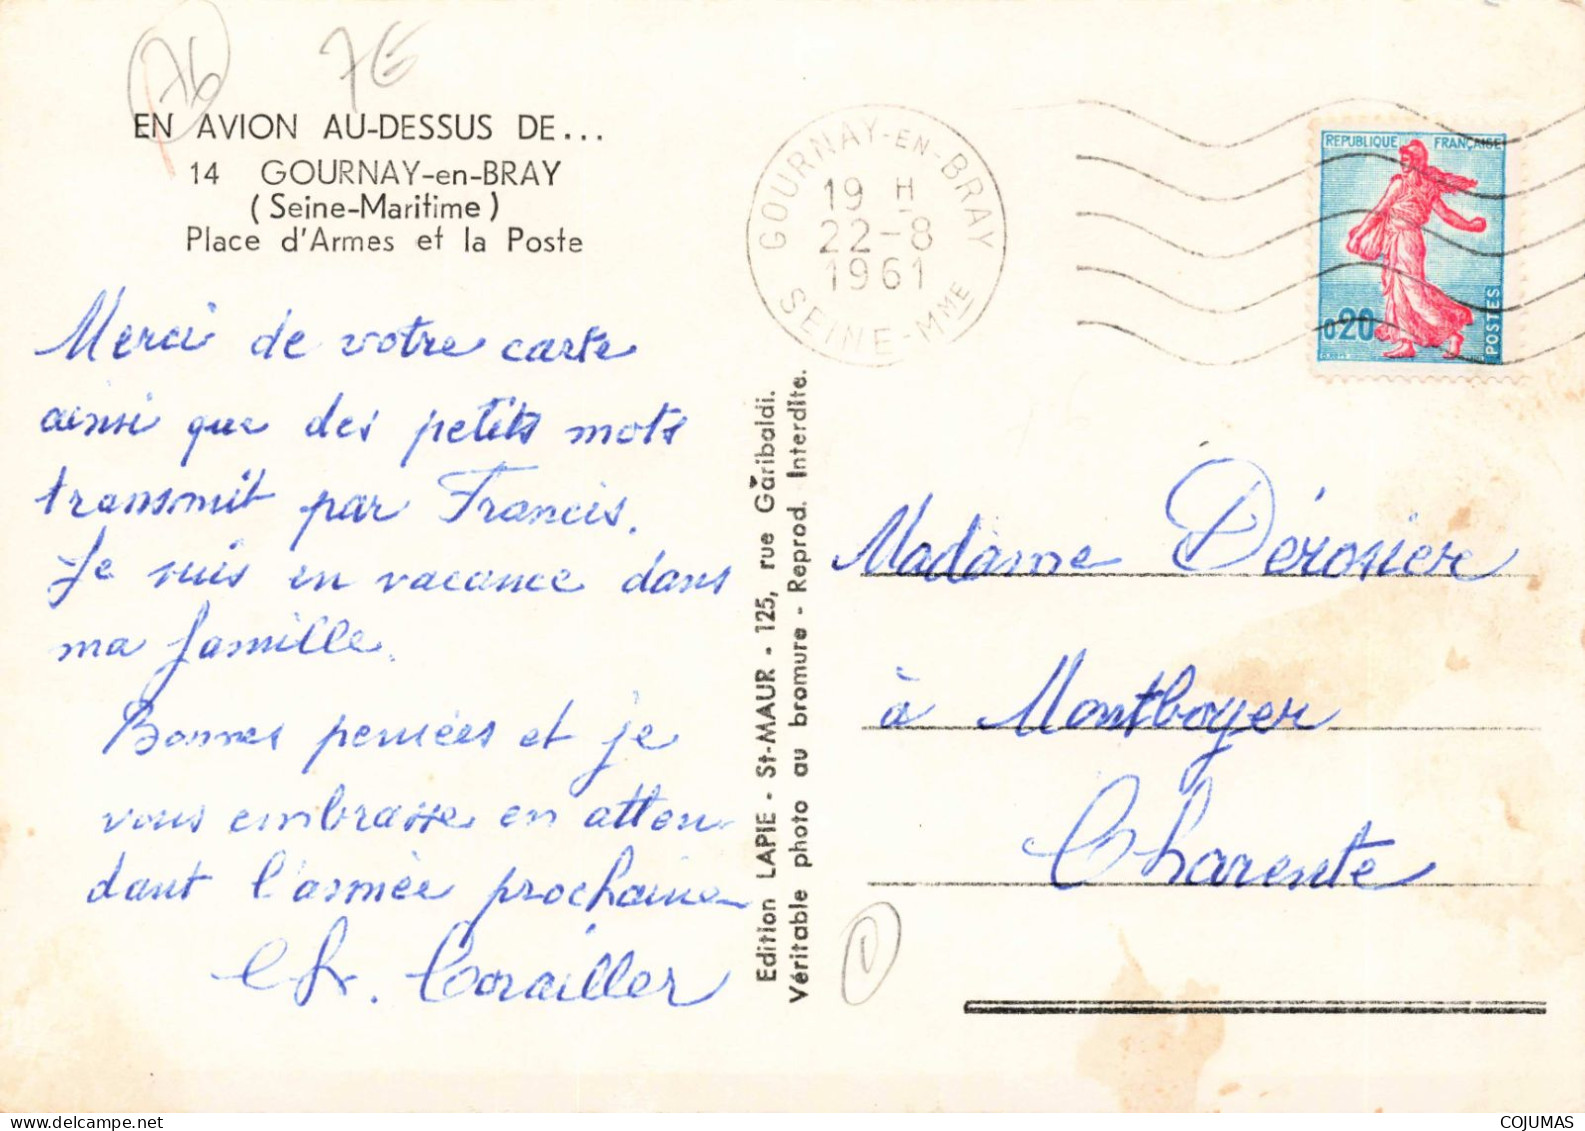 76
7E
EN AVION AU-DESSUS DE...
14 GOURNAY-en-BRAY
(Seine-Maritime)
Place d'Armes et la Poste
Merci de votre carte
ainsi que des petits mots
transmit par Francis.
Je suis en vacance dans
ma famille.
Bonnes pensées et je
vous embrasse en atten
dant l'année prochaine
Ch. Corailler
Edition LAPIE - St-MAUR - 125, rue Garibaldi.
Véritable photo au bromure - Reprod. Interdite.
GOURNAY-EN-BRAY
19 H
22-8
1961
SEINE-MME
REPUBLIQUE FRANÇAISE
0,20
POSTES
Madame Dérosier
à Montboyer
Charente
delcampe.net
COJUMAS